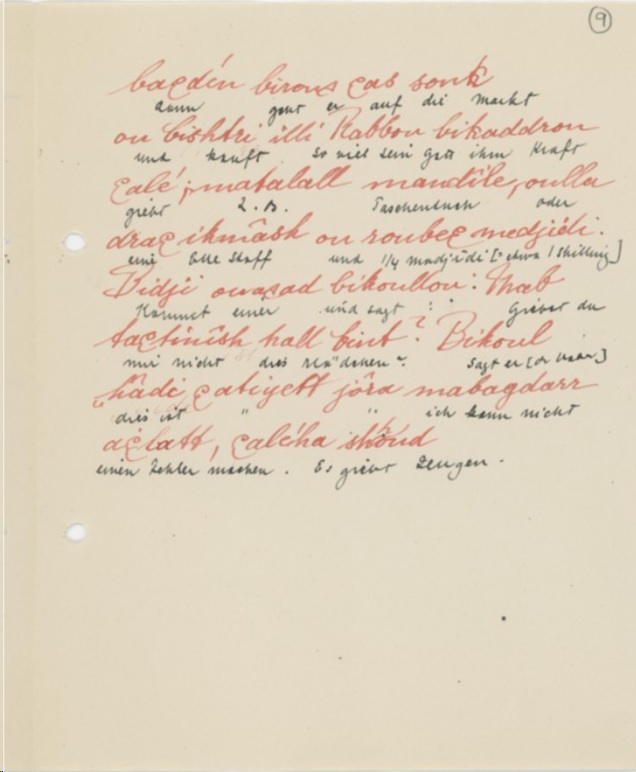 9
baçdén birouç çad souk
dann geht er auf die Markt
ou bishtri illi Rabbou bikaddrou
und kauft so viel sein Gott ihm Kraft
çalé; matalall mandîle, oulla
giebt z.B. Taschentuch oder
draç ikmâsh ou roubeç medjidi.
eine Elle Stoff und 1/4 madjîdi [= etwa 1 shilling]
Vidji owaçad bikoullou:
Kommet einer und sagt : " Giebst du
taçtinîsh hall bint? Bikoul
mir nicht dies Mädchen? sagt er [der Vater]
"hâdi çatiyett jôra mabagdarr
dies ist " " ich kann nicht
açlatt, çaléha shhoud
einen Fehler machen. Es giebt Zeugen.